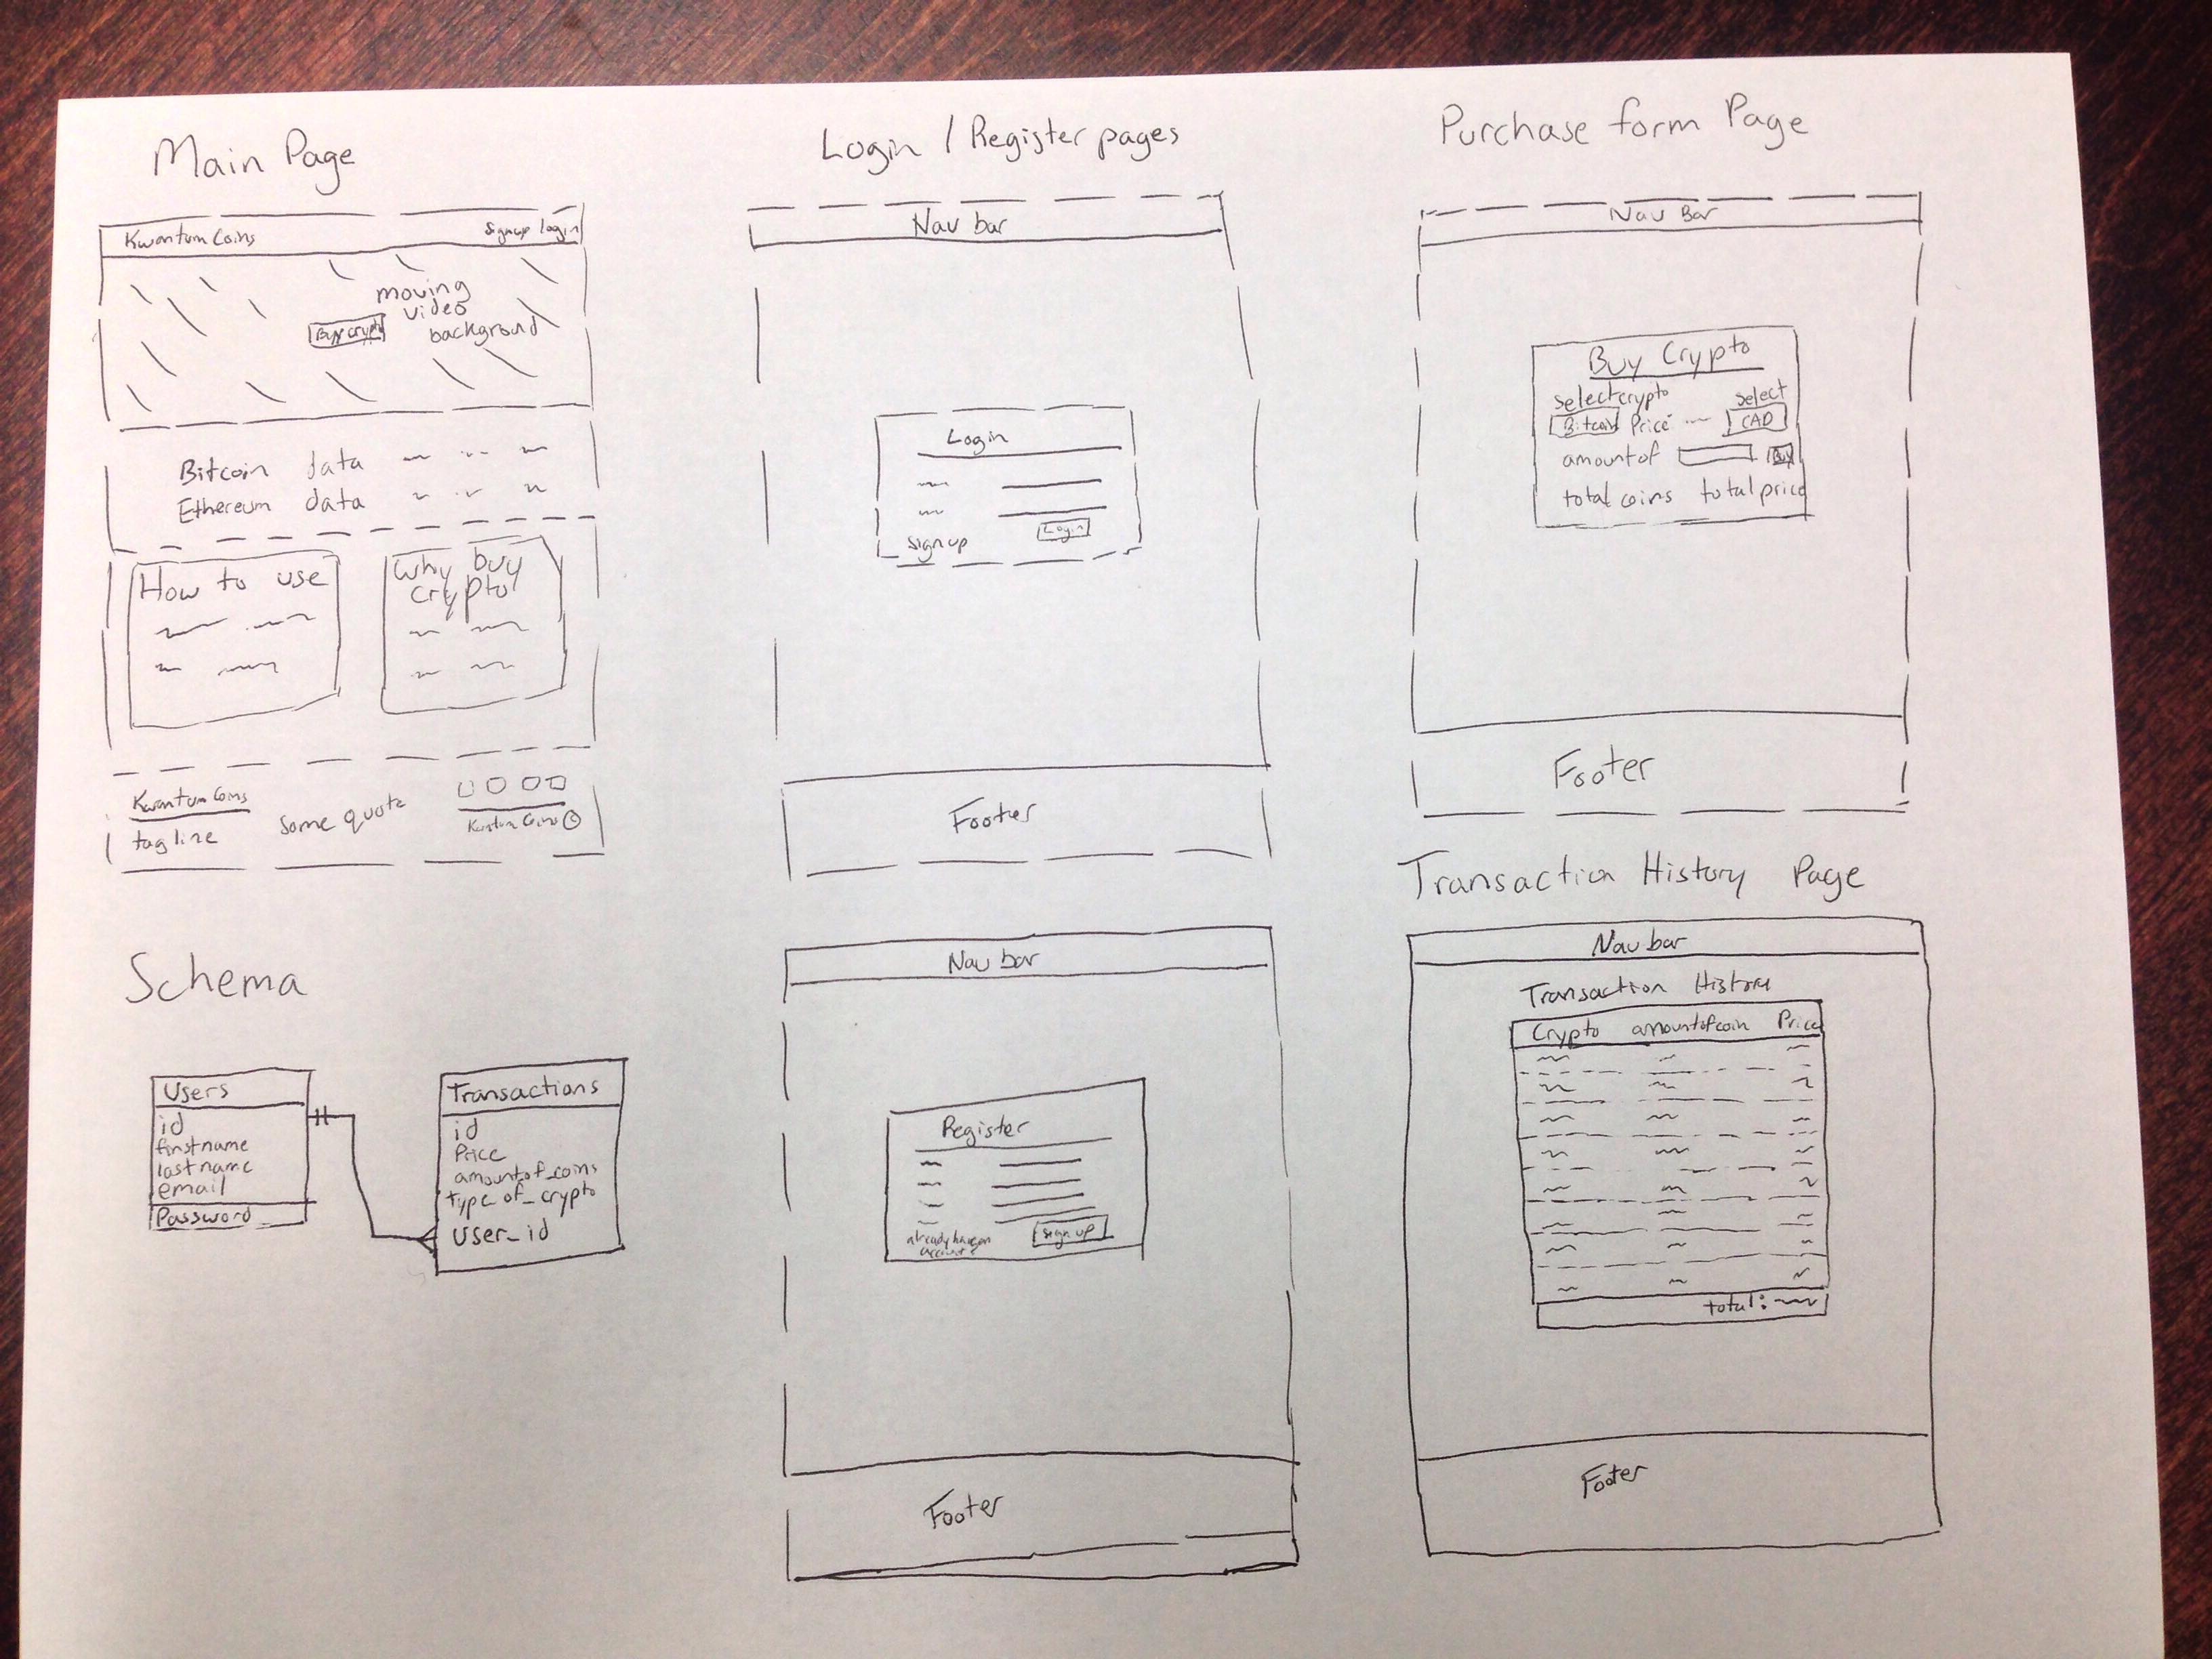 Main Page
Kwantum Coins
Signup login
moving
video
background
Buy crypto
Bitcoin data
Ethereum data
How to use
Why buy
crypto
Kwantum Coins
tagline
Some quote
Kwantum Coins ©
Schema
Users
id
firstname
last name
email
Password
Transactions
id
Price
amount_of_coins
type_of_crypto
user_id
Login / Register pages
Nav bar
Login
signup
Login
Footer
Nav bar
Register
already have an
account
sign up
Footer
Purchase form Page
Nav Bar
Buy Crypto
select crypto
select
Bitcoin Price
CAD
amount of
Buy
total coins total price
Footer
Transaction History Page
Nav bar
Transaction History
Crypto amount of coin Price
total:
Footer